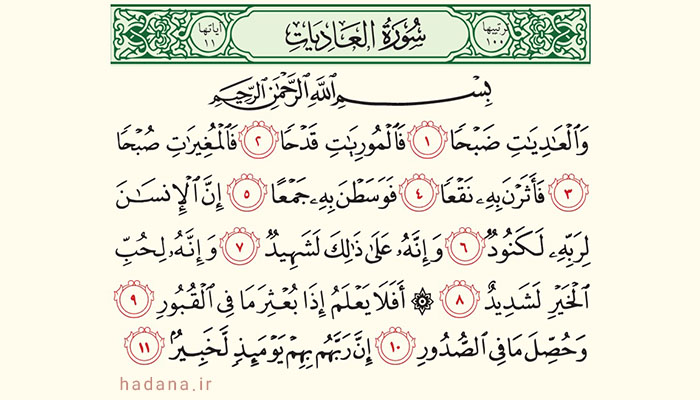 ترتيبها ١٠٠ سُورَةُ العَادِيَاتِ آياتها ١١
بِسْمِ اللَّهِ الرَّحْمَٰنِ الرَّحِيمِ
وَالْعَادِيَاتِ ضَبْحًا ١ فَالْمُورِيَاتِ قَدْحًا ٢ فَالْمُغِيرَاتِ صُبْحًا
٣ فَأَثَرْنَ بِهِ نَقْعًا ٤ فَوَسَطْنَ بِهِ جَمْعًا ٥ إِنَّ الْإِنسَانَ
لِرَبِّهِ لَكَنُودٌ ٦ وَإِنَّهُ عَلَىٰ ذَٰلِكَ لَشَهِيدٌ ٧ وَإِنَّهُ لِحُبِّ
الْخَيْرِ لَشَدِيدٌ ٨ ۞ أَفَلَا يَعْلَمُ إِذَا بُعْثِرَ مَا فِي الْقُبُورِ ٩
وَحُصِّلَ مَا فِي الصُّدُورِ ١٠ إِنَّ رَبَّهُم بِهِمْ يَوْمَئِذٍ لَّخَبِيرٌ ١١
hadana.ir